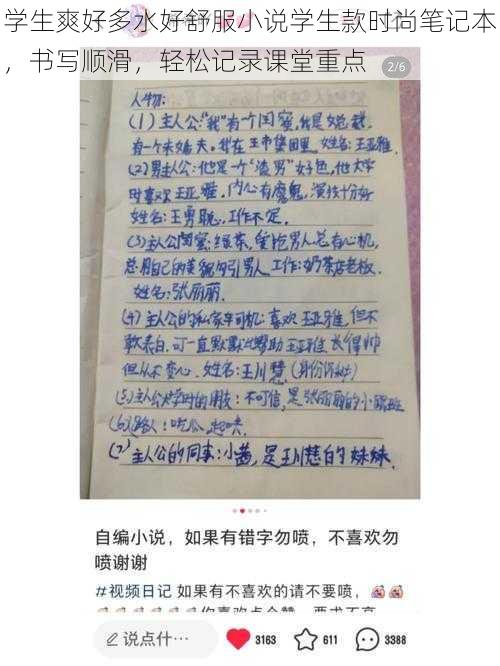 学生爽好多水好舒服小说学生款时尚笔记本
，书写顺滑，轻松记录课堂重点
2/6
人物：
(1)主人公："我"有一个闺蜜，我是女总裁，
有一个未婚夫。我在王市集团里，姓名：王亚雅.
(2)男主人公：他是一个"渣男"好色，他大学
时喜欢王亚雅，内心有魔鬼，演技十分好
姓名：王勇聪，工作不定.
(3)主人公闺蜜：绿茶，男人总有心机，
总用自己的美貌勾引男人，工作：奶茶店老板，
姓名：张丽丽.
(4)主人公的私家车司机：喜欢王亚雅，但不
敢表白，可一直默默地帮助王亚雅，长得帅
但从不变心，姓名：王川慧（身份）
(5)主人公大学时的朋友：不可信，是张丽丽的小跟班
(6)路人：吃瓜，起哄.
(7)主人公的同事：小茜，是王川慧的妹妹.
自编小说，如果有错字勿喷，不喜欢勿
喷谢谢
#视频日记 如果有不喜欢的请不要喷，
说点什… 3163 611 3388